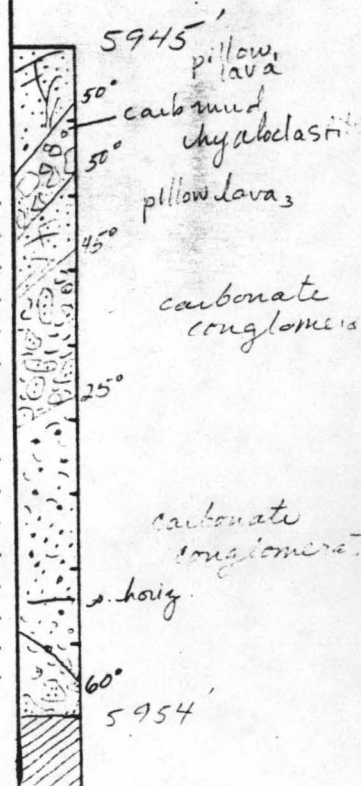 5945'
pillow
lava
50°
carb mud
hyaloclastit
50°
pillow lavas
45°
carbonate
conglomera
25°
carbonate
conglomerat
horiz
60°
5954'